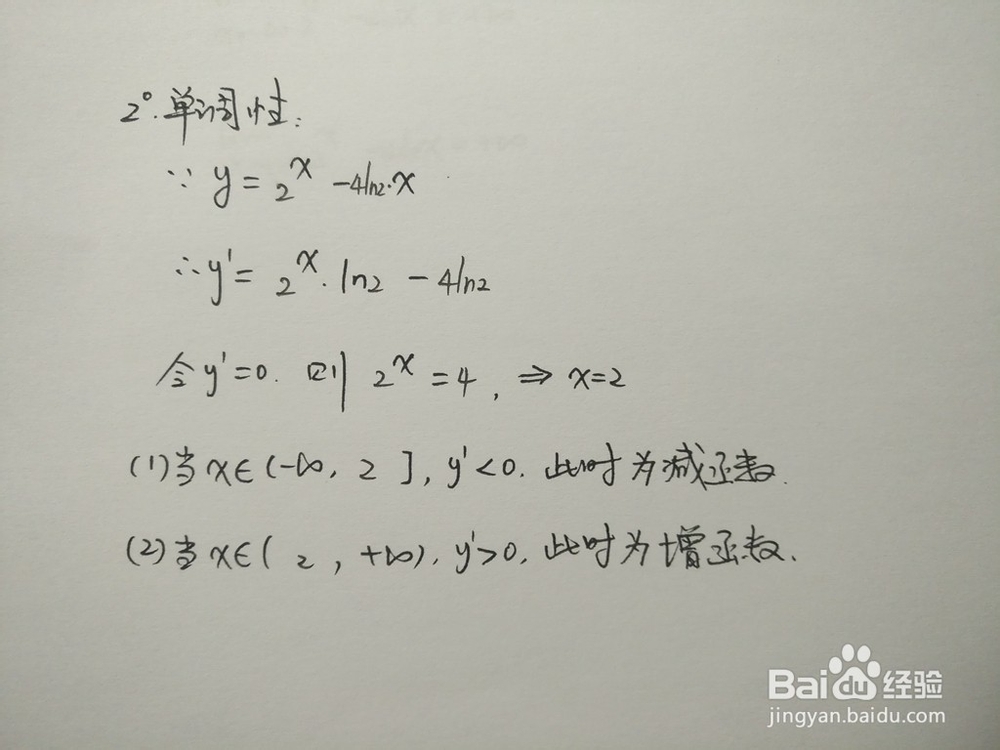 2°.单调性:
∵ y = 2^x -4ln2·x
∴ y' = 2^x · ln2 - 4ln2
令y'=0. 则 2^x = 4, ⇒ x=2
(1)当x∈(-∞, 2], y'<0. 此时为减函数.
(2)当x∈( 2, +∞), y'>0, 此时为增函数.
Baidu经验
jingyan.baidu.com